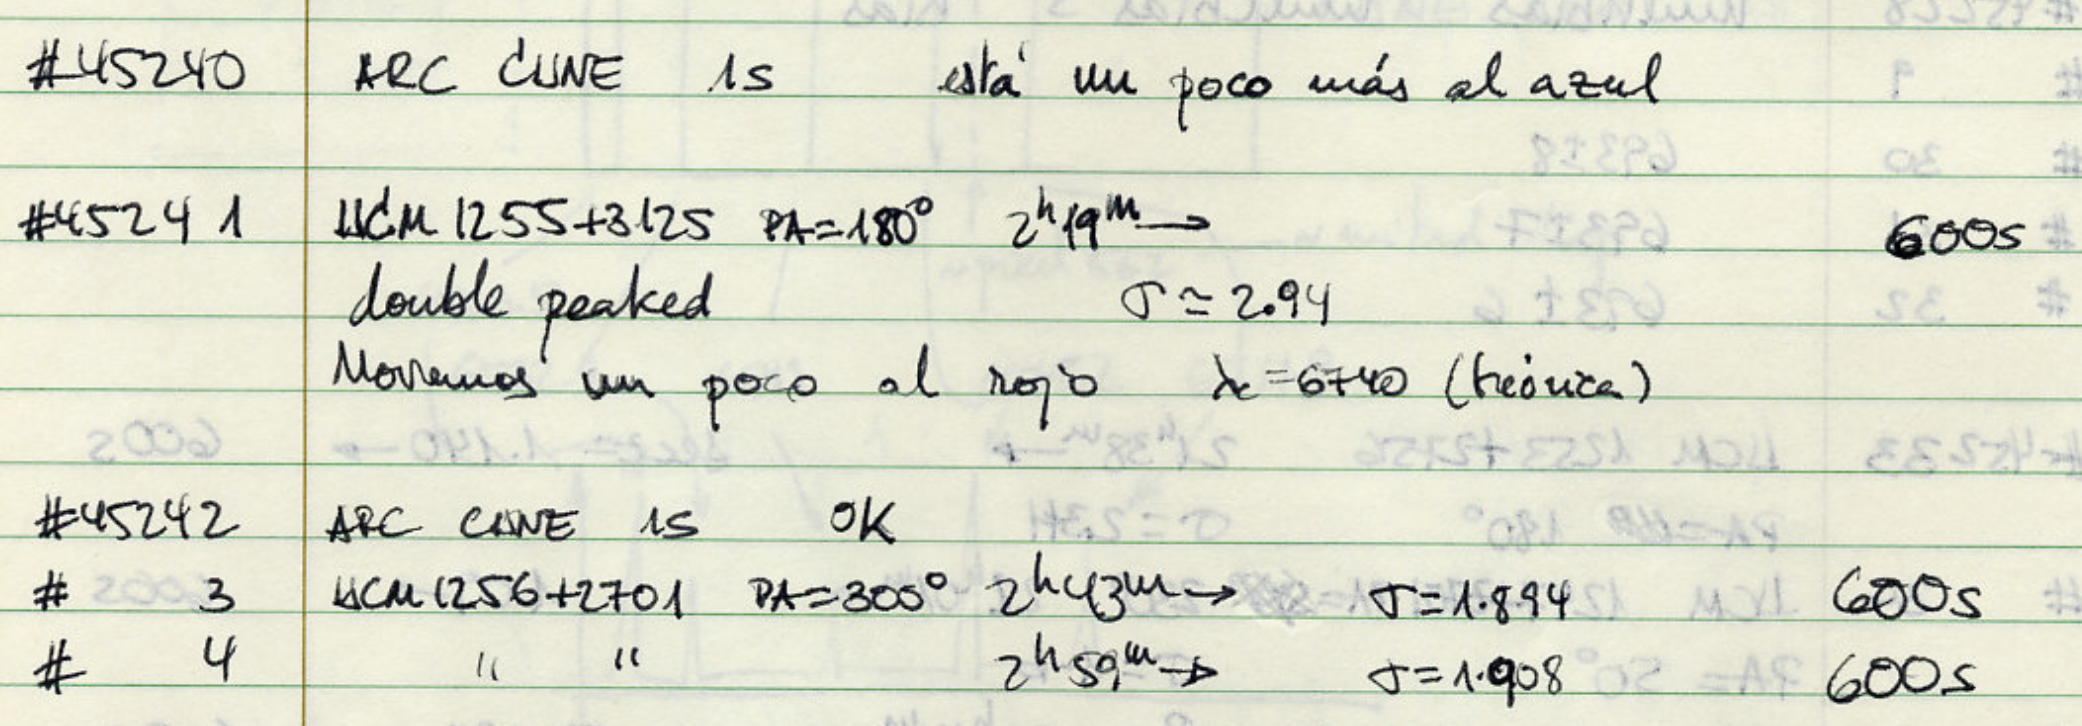 #45240 ARC CUNE 1s está un poco más al azul
#45241 UCM 1255+3125 PA=180° 2ʰ19ᵐ→ 600s
double peaked σ≃2.94
Movemos un poco al rojo λc=6740 (teórica)
#45242 ARC CUNE 1s OK
# 3 UCM 1256+2701 PA=300° 2ʰ43ᵐ→ σ=1.894 600s
# 4 " " 2ʰ59ᵐ→ σ=1.908 600s